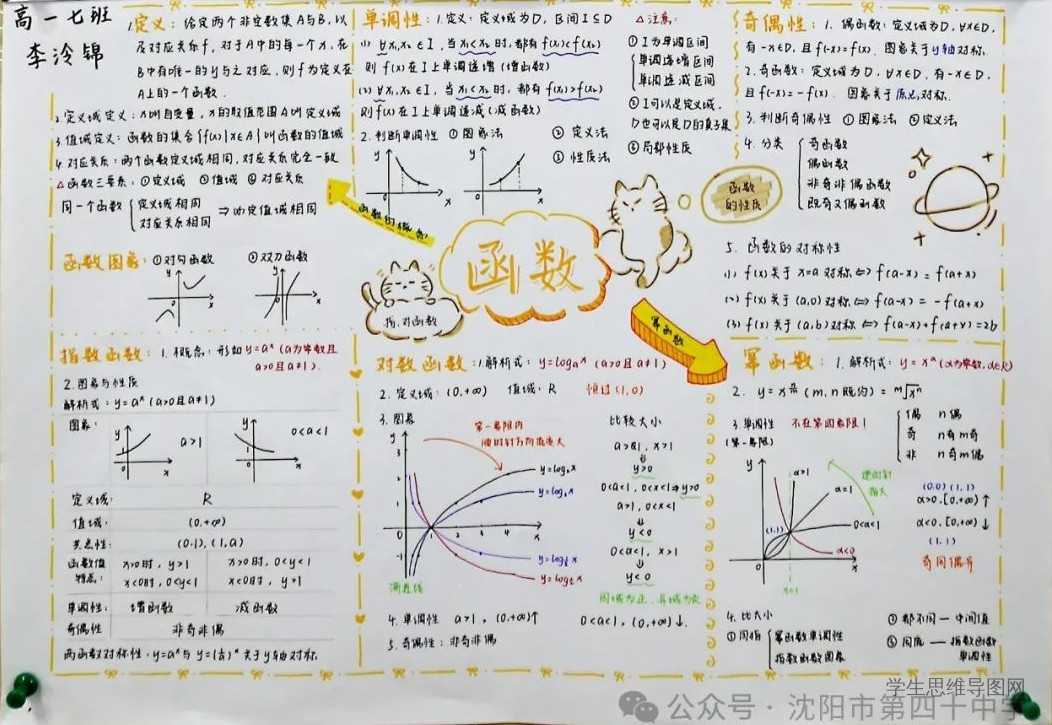 高一七班
李泠锦
1.定义：给定两个非空数集A与B，以
及对应关系f，对于A中的每一个x，在
B中有唯一的y与之对应，则f为定义在
A上的一个函数．
2.定义域定义：x叫自变量，x的取值范围A叫定义域
3.值域定义：函数的集合{f(x)|x∈A}叫函数的值域
4.对应关系：两个函数定义域相同，对应关系完全一致
△函数三要素：①定义域 ②值域 ③对应关系
同一个函数
定义域相同
对应关系相同
⇒ 由定值域相同
函数的概念
函数图象：①对勾函数 ②双刀函数
单调性：1.定义：定义域为D，区间I⊆D
(1) ∀x₁,x₂∈I，当x₁<x₂时，都有f(x₁)<f(x₂)
则f(x)在I上单调递增(增函数)
(2) ∀x₁,x₂∈I，当x₁<x₂时，都有f(x₁)>f(x₂)
则f(x)在I上单调递减(减函数)
2.判断单调性 ①图象法 ② 定义法
③ 性质法
△注意：
①I为单调区间
单调递增区间
单调递减区间
②I可以是定义域，
D也可以是D的真子集
③局部性质
奇偶性：1. 偶函数：定义域为D，∀x∈D，
有-x∈D，且f(-x)=f(x)．图象关于y轴对称．
2.奇函数：定义域为D，∀x∈D，有-x∈D，
且f(-x)=-f(x)． 图象关于原点对称．
3. 判断奇偶性 ①图象法 ②定义法
4. 分类
奇函数
偶函数
非奇非偶函数
既奇又偶函数
5. 函数的对称性
(1) f(x)关于x=a对称⇔f(a-x)=f(a+x)
(2) f(x)关于(a,0)对称⇔f(a-x)=-f(a+x)
(3) f(x)关于(a,b)对称⇔f(a-x)+f(a+x)=2b
函数
的性质
函数
指、对函数
幂函数
指数函数：1. 概念：形如y=aˣ(a为常数且
a>0且a≠1)．
2.图象与性质
解析式：y=aˣ(a>0且a≠1)
图象：
a>1
0<a<1
定义域： R
值域： (0,+∞)
共点性： (0,1)，(1,a)
函数值
特点：
x>0时，y>1
x<0时，0<y<1
x>0时，0<y<1
x<0时，y>1
单调性： 增函数 减函数
奇偶性 非奇非偶
两函数对称性：y=aˣ与y=(1/a)ˣ关于y轴对称
对数函数：1.解析式：y=logₐx (a>0且a≠1)
2.定义域：(0,+∞) 值域：R 恒过(1,0)
3.图象
第一象限内
顺时针方向底变大
渐近线
比较大小
a>1，x>1
⇓
y>0
0<a<1，0<x<1⇒y>0
a>1，0<x<1
⇓
y<0
0<a<1，x>1
⇓
y<0
同域为正，异域为负
4.单调性 a>1，(0,+∞)↑ 0<a<1，(0,+∞)↓．
5.奇偶性：非奇非偶
幂函数： 1.解析式：y=xᵅ(α为常数，α∈R)
3.单调性 不在第四象限！
(第一象限)
偶 n偶
奇 n奇m奇
非 n奇m偶
逆时针
指大
α>1
α=1
0<α<1
α<0
(1,1)
x=1
(0,0) (1,1)
α>0，[0,+∞)↑
α<0，[0,+∞)↓
(1,1)
奇同偶异
4.比大小
①同指
幂函数单调性
指数函数图象
②都不同—中间值
③同底—指数函数
单调性
学生思维导图网
公众号·沈阳市第四十中学